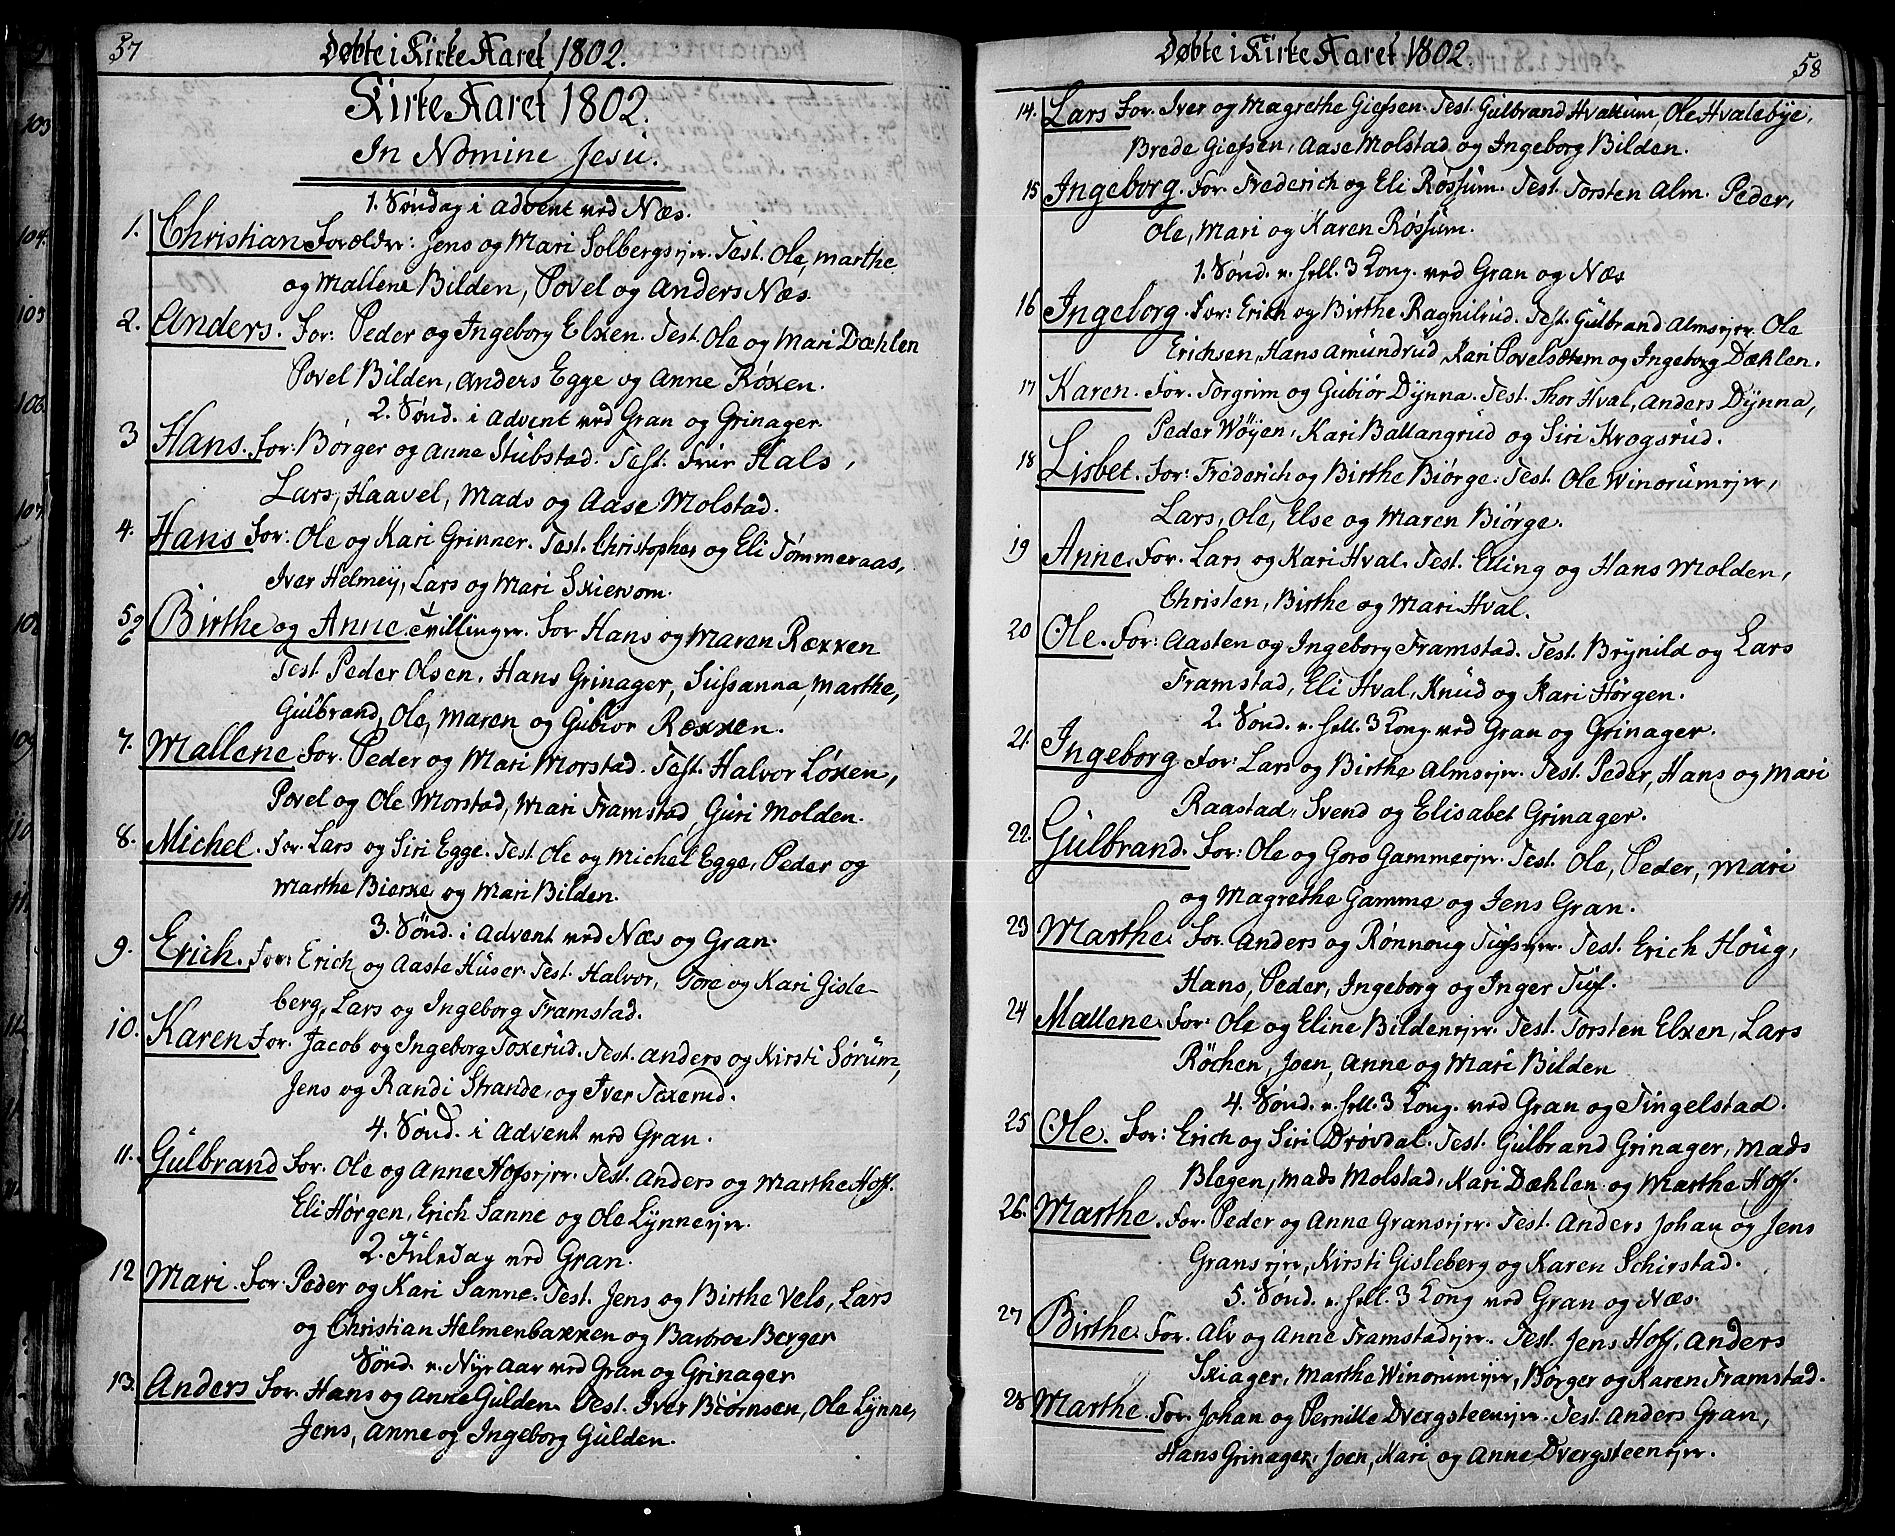 57
Døbte i Kirke Aaret 1802.
Kirke Aaret 1802.
In Nomine Jesu.
1. Søndag i Advent ved Næs.
1. Christian Forældre: Jens og Mari Solbergsejer. Test. Ole, Marthe
og Mallene Bilden, Povel og Anders Næs.
2. Anders. For: Peder og Ingeborg Elken. Test. Ole og Mari Dæhlen
Povel Bilden, Anders Egge og Anne Røken.
2. Sønd. i Advent ved Gran og Grinager.
3 Hans. For: Børger og Anne Stubstad. Test. Hals,
Lars, Haavel, Mads og Aase Molstad.
4. Hans For: Ole og Kari Grinner. Test. Christopher og Eli Tømmeraas,
Iver Helmey, Lars og Mari Skiervom.
5 og 6 Birthe og Anne tvillinger. For Hans og Maren Rækken
Test. Peder Olsen, Hans Grinager, Sussanna, Marthe,
Gulbrand, Ole, Maren og Gubior Rækken.
7. Mallene For. Peder og Mari Morstad. Test. Halvor Løken,
Povel og Ole Morstad, Mari Framstad, Guri Molden.
8. Michel. For. Lars og Siri Egge. Test. Ole og Michel Egge, Peder og
Marthe Bierke og Mari Bilden.
3. Sønd. i Advent ved Næs og Gran.
9. Erich. For: Erich og Aaste Huser. Test. Halvor, Tore og Kari Gisle-
berg, Lars og Ingeborg Framstad.
10. Karen For. Jacob og Ingeborg Toxerud. Test. Anders og Kirsti Sørum,
Jens og Randi Strande, og Iver Toxerud.
4. Sønd. i Advent ved Gran.
11. Gulbrand For. Ole og Anne Hofsejer. Test. Anders og Marthe Hoff.
Eli Hørgen, Erich Sanne og Ole Lynneejer.
2. Juledag ved Gran.
12 Mari. For Peder og Kari Sanne. Test. Jens og Birthe Vels, Lars
og Christian Helmenbakken og Barbroe Berger
Sønd. e. Nye Aar ved Gran og Grinager
13. Anders For. Hans og Anne Gulden. Test. Iver Biørnsen, Ole Lynne,
Jens, Anne og Ingeborg Gulden.
Døbte i Kirke Aaret 1802.
58
14. Lars For. Iver og Magrethe Giefsen. Test. Gulbrand Hvattum, Ole Hvalebye,
Brede Giefsen, Aase Molstad og Ingeborg Bilden.
15 Ingeborg. For. Frederich og Eli Røssum. Test. Torsten Alm. Peder,
Ole, Mari og Karen Røssum.
1. Sønd. e. hell. 3 Kong. ved Gran og Næs
16 Ingeborg. For: Erich og Birthe Ragnilrud. Test. Gulbrand Almsejer. Ole
Erichsen, Hans Amundrud, Kari Povelsætem og Ingeborg Dæhlen.
17 Karen. For. Torgrim og Gubiør Dynna. Test. Thor Hval, Anders Dynna,
Peder Wøyen, Kari Ballangrud og Siri Krogsrud.
18 Lisbet. For: Frederich og Birthe Biørge. Test. Ole Winorumejer,
Lars, Ole, Else og Maren Biørge.
19 Anne. For. Lars og Kari Hval. Test. Elling og Hans Molden,
Christen, Birthe og Mari Hval.
20 Ole. For: Aasten og Ingeborg Framstad. Test. Brynild og Lars
Framstad, Eli Hval, Knud og Kari Hørgen.
2. Sønd. e. hell. 3 Kong. ved Gran og Grinager.
21. Ingeborg For: Lars og Birthe Almsejer. Test. Peder, Hans og Mari
Raastad, Svend og Elisabet Grinager.
22. Gulbrand. For: Ole og Goro Gammeejer. Test. Ole, Peder, Mari
og Magrethe Gamme og Jens Gran.
23 Marthe. For. Anders og Rønnoug Tufsejer. Test. Erich Houg,
Hans, Peder, Ingeborg og Inger Tuf.
24 Mallene. For: Ole og Eline Bildenejer. Test. Torsten Elken, Lars
Røchen, Joen, Anne og Mari Bilden
4. Sønd. e. hell. 3 Kong. ved Gran og Tingelstad.
25 Ole. For: Erich og Siri Drøvdal. Test. Gulbrand Grinager, Mads
Blegen, Mads Molstad, Kari Dæhlen og Marthe Hoff.
26. Marthe. For. Peder og Anne Gransejer. Test. Anders Johan og Jens
Gransejer, Kirsti Gisleberg og Karen Schirstad.
5. Sønd. e. hell. 3 Kong ved Gran og Næs.
27 Birthe. For. Alv og Anne Framstadejer. Test. Jens Hoff, Anders
Skiager, Marthe Winorumejer, Børger og Karen Framstad.
28 Marthe. For. Johan og Pernille Dvergsteenejer. Test. Anders Gran,
Hans Grinager, Joen, Kari og Anne Dvergsteenejer.